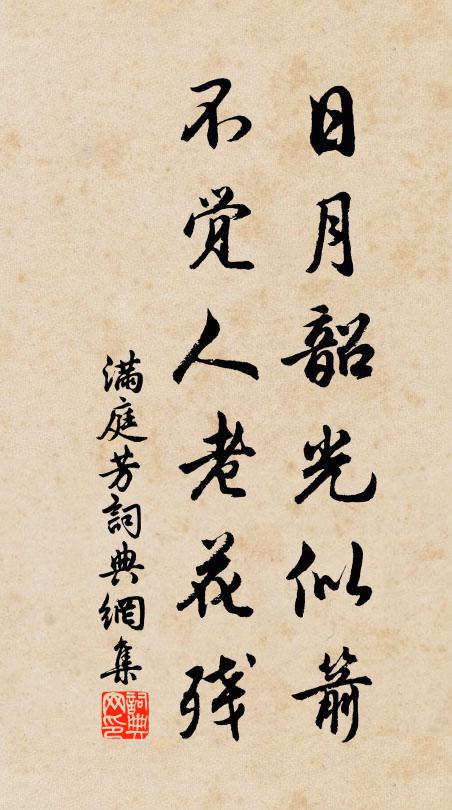 日月韶光似箭
不觉人老花残
满庭芳詞典網集
詞典
网印